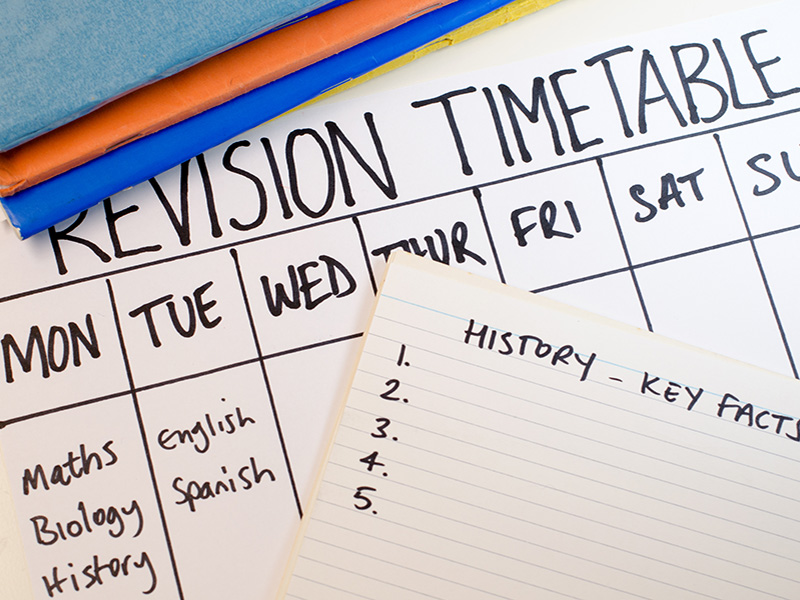 REVISION TIMETABLE
MON TUE WED THUR FRI SAT SU
Maths
Biology
History
English
Spanish
HISTORY - KEY FACTS
1.
2.
3.
4.
5.